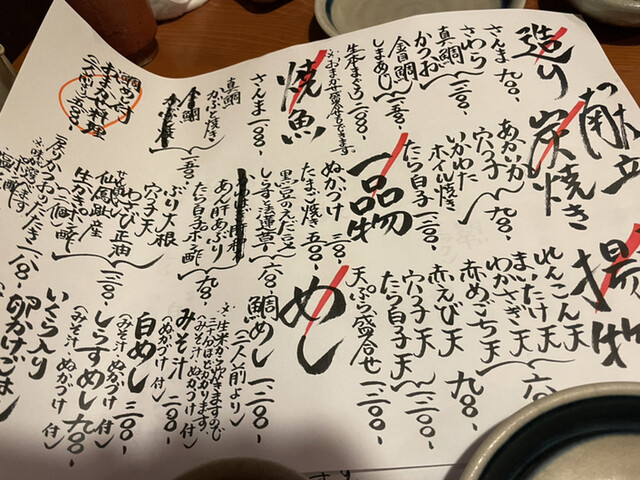 献立
造り
さんま 九〇〇-
さわら
真鯛
かつお 一二〇〇-
金目鯛
しまあじ 一五〇〇-
生本まぐろ
※おまかせ盛合せもできます
焼魚
さんま 一〇〇〇-
真鯛
かぶと焼き
金目鯛
かぶと煮 一五〇〇-
鯛めし付
おまかせ料理
炭焼き
あかいか
穴つ子 九〇〇-
いかわた
ホイル焼き
たら白子 一二〇〇-
一品物
ぬかづけ 三〇〇-
黒っこのえだまめ
たまご焼き 五〇〇-
しらすと法蓮草
あん肝あぶり
たら白子ポン酢 一二〇〇-
ぶり大根
穴子天
わさび正油
仙鳳趾産
生かき
二杯酢
戻りかつおたたき 一八〇〇-
揚物
れんこん天
まいたけ天 六〇〇-
わかさぎ天
赤めごち天
赤えび天 九〇〇-
穴つ子天
たら白子天 一三〇〇-
天ぷら盛合せ 一三〇〇-
めし
鯛めし(二人前より) 一二〇〇-
※生米から炊きますので
三十分ほどかかります
(みそ汁・ぬかづけ付)
みそ汁 二〇〇-
(ぬかづけ付)
白めし 三〇〇-
(みそ汁・ぬかづけ付)
しらすめし 九〇〇-
(みそ汁・ぬかづけ付)
いくら入り
卵かけごはん
(みそ汁・ぬかづけ付)